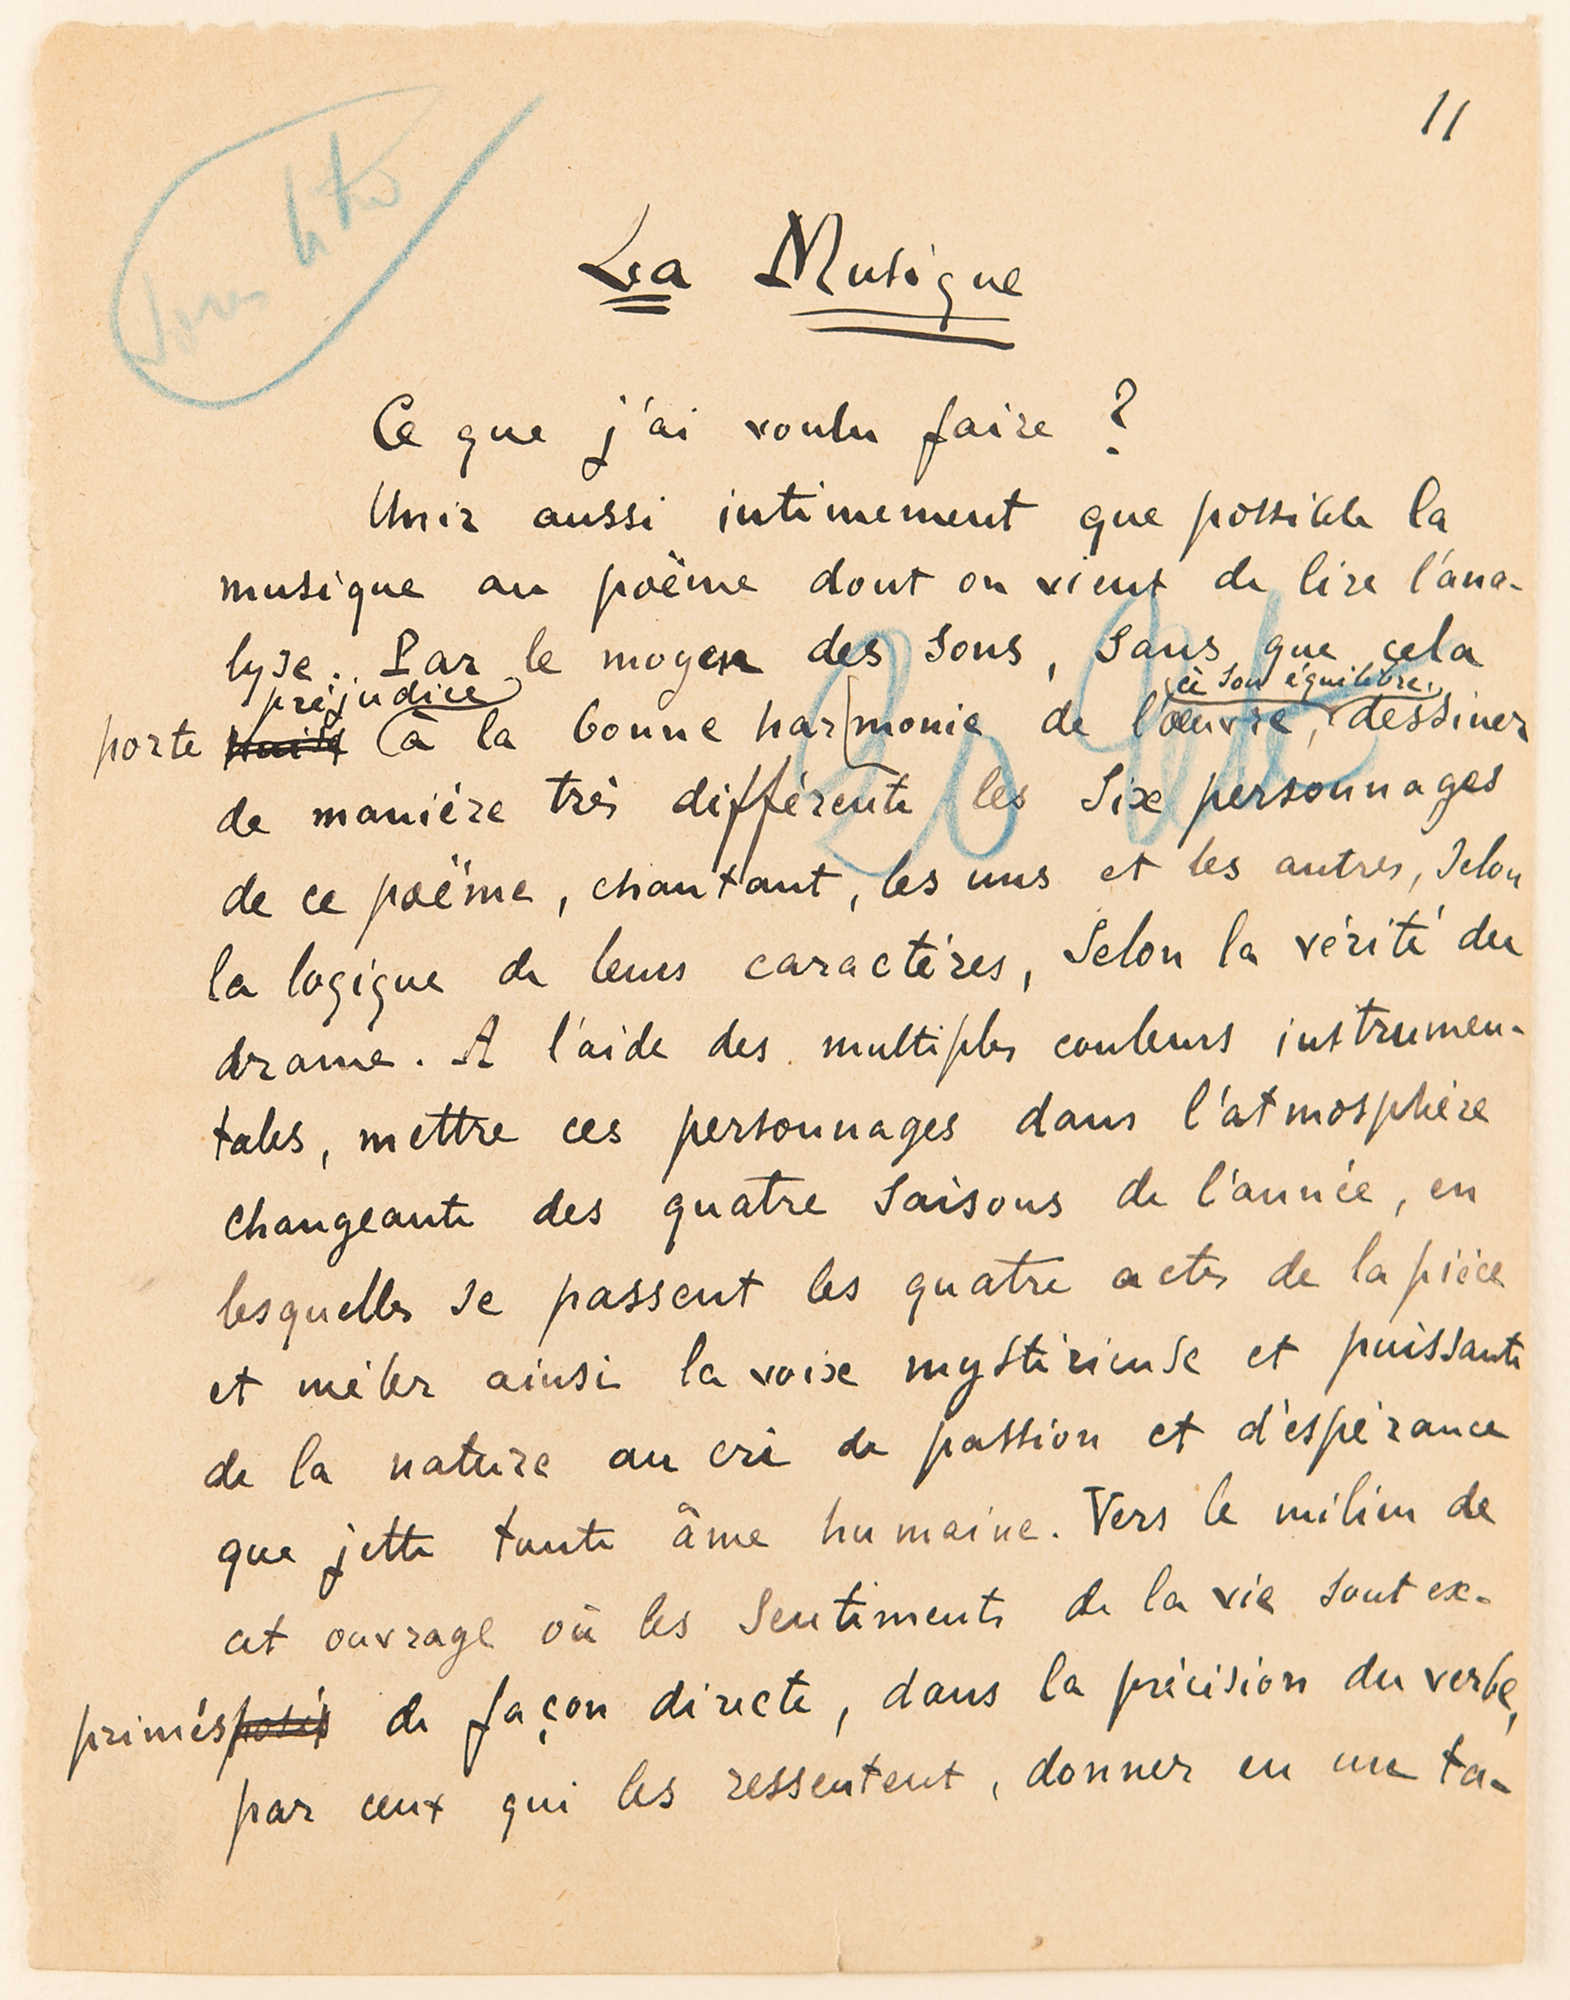 11
La Musique
Ce que j'ai voulu faire ?
Unir aussi intimement que possible la
musique au poëme dont on vient de lire l'ana-
lyse. Par le moyen des sons, sans que cela
préjudice à son équilibre,
porte nuise à la bonne harmonie de l'œuvre, dessiner
de manière très différente les six personnages
de ce poëme, chantant, les uns et les autres, selon
la logique de leurs caractéres, selon la vérité du
drame. A l'aide des multiples couleurs instrumen-
tales, mettre ces personnages dans l'atmosphère
changeante des quatre saisons de l'année, en
lesquelles se passent les quatre actes de la pièce
et mêler ainsi la voix mystérieuse et puissante
de la nature au cri de passion et d'espérance
que jette toute âme humaine. Vers le milieu de
cet ouvrage où les sentiments de la vie sont ex-
primés posés de façon directe, dans la précision du verbe,
par ceux qui les ressentent, donner en un ta-